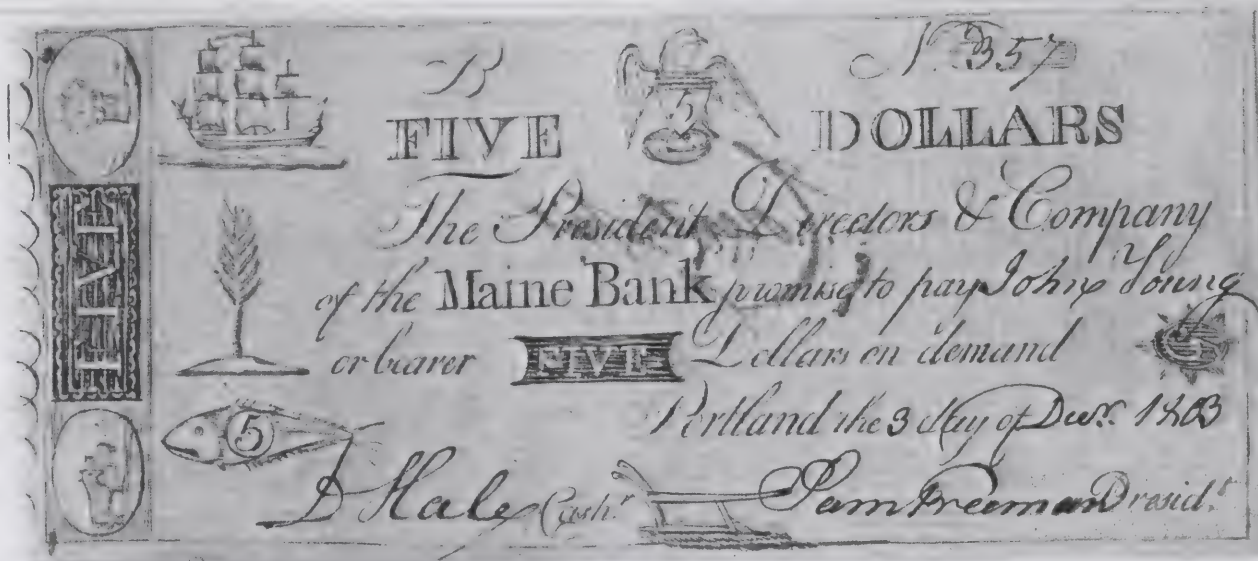 B No. 357
FIVE 5 DOLLARS
The President Directors & Company
of the Maine Bank promise to pay John Young
or bearer FIVE Dollars on demand
Portland the 3 day of Decr. 1803
5
D Hale Cashr. Sam Freeman Presidt.
FIVE